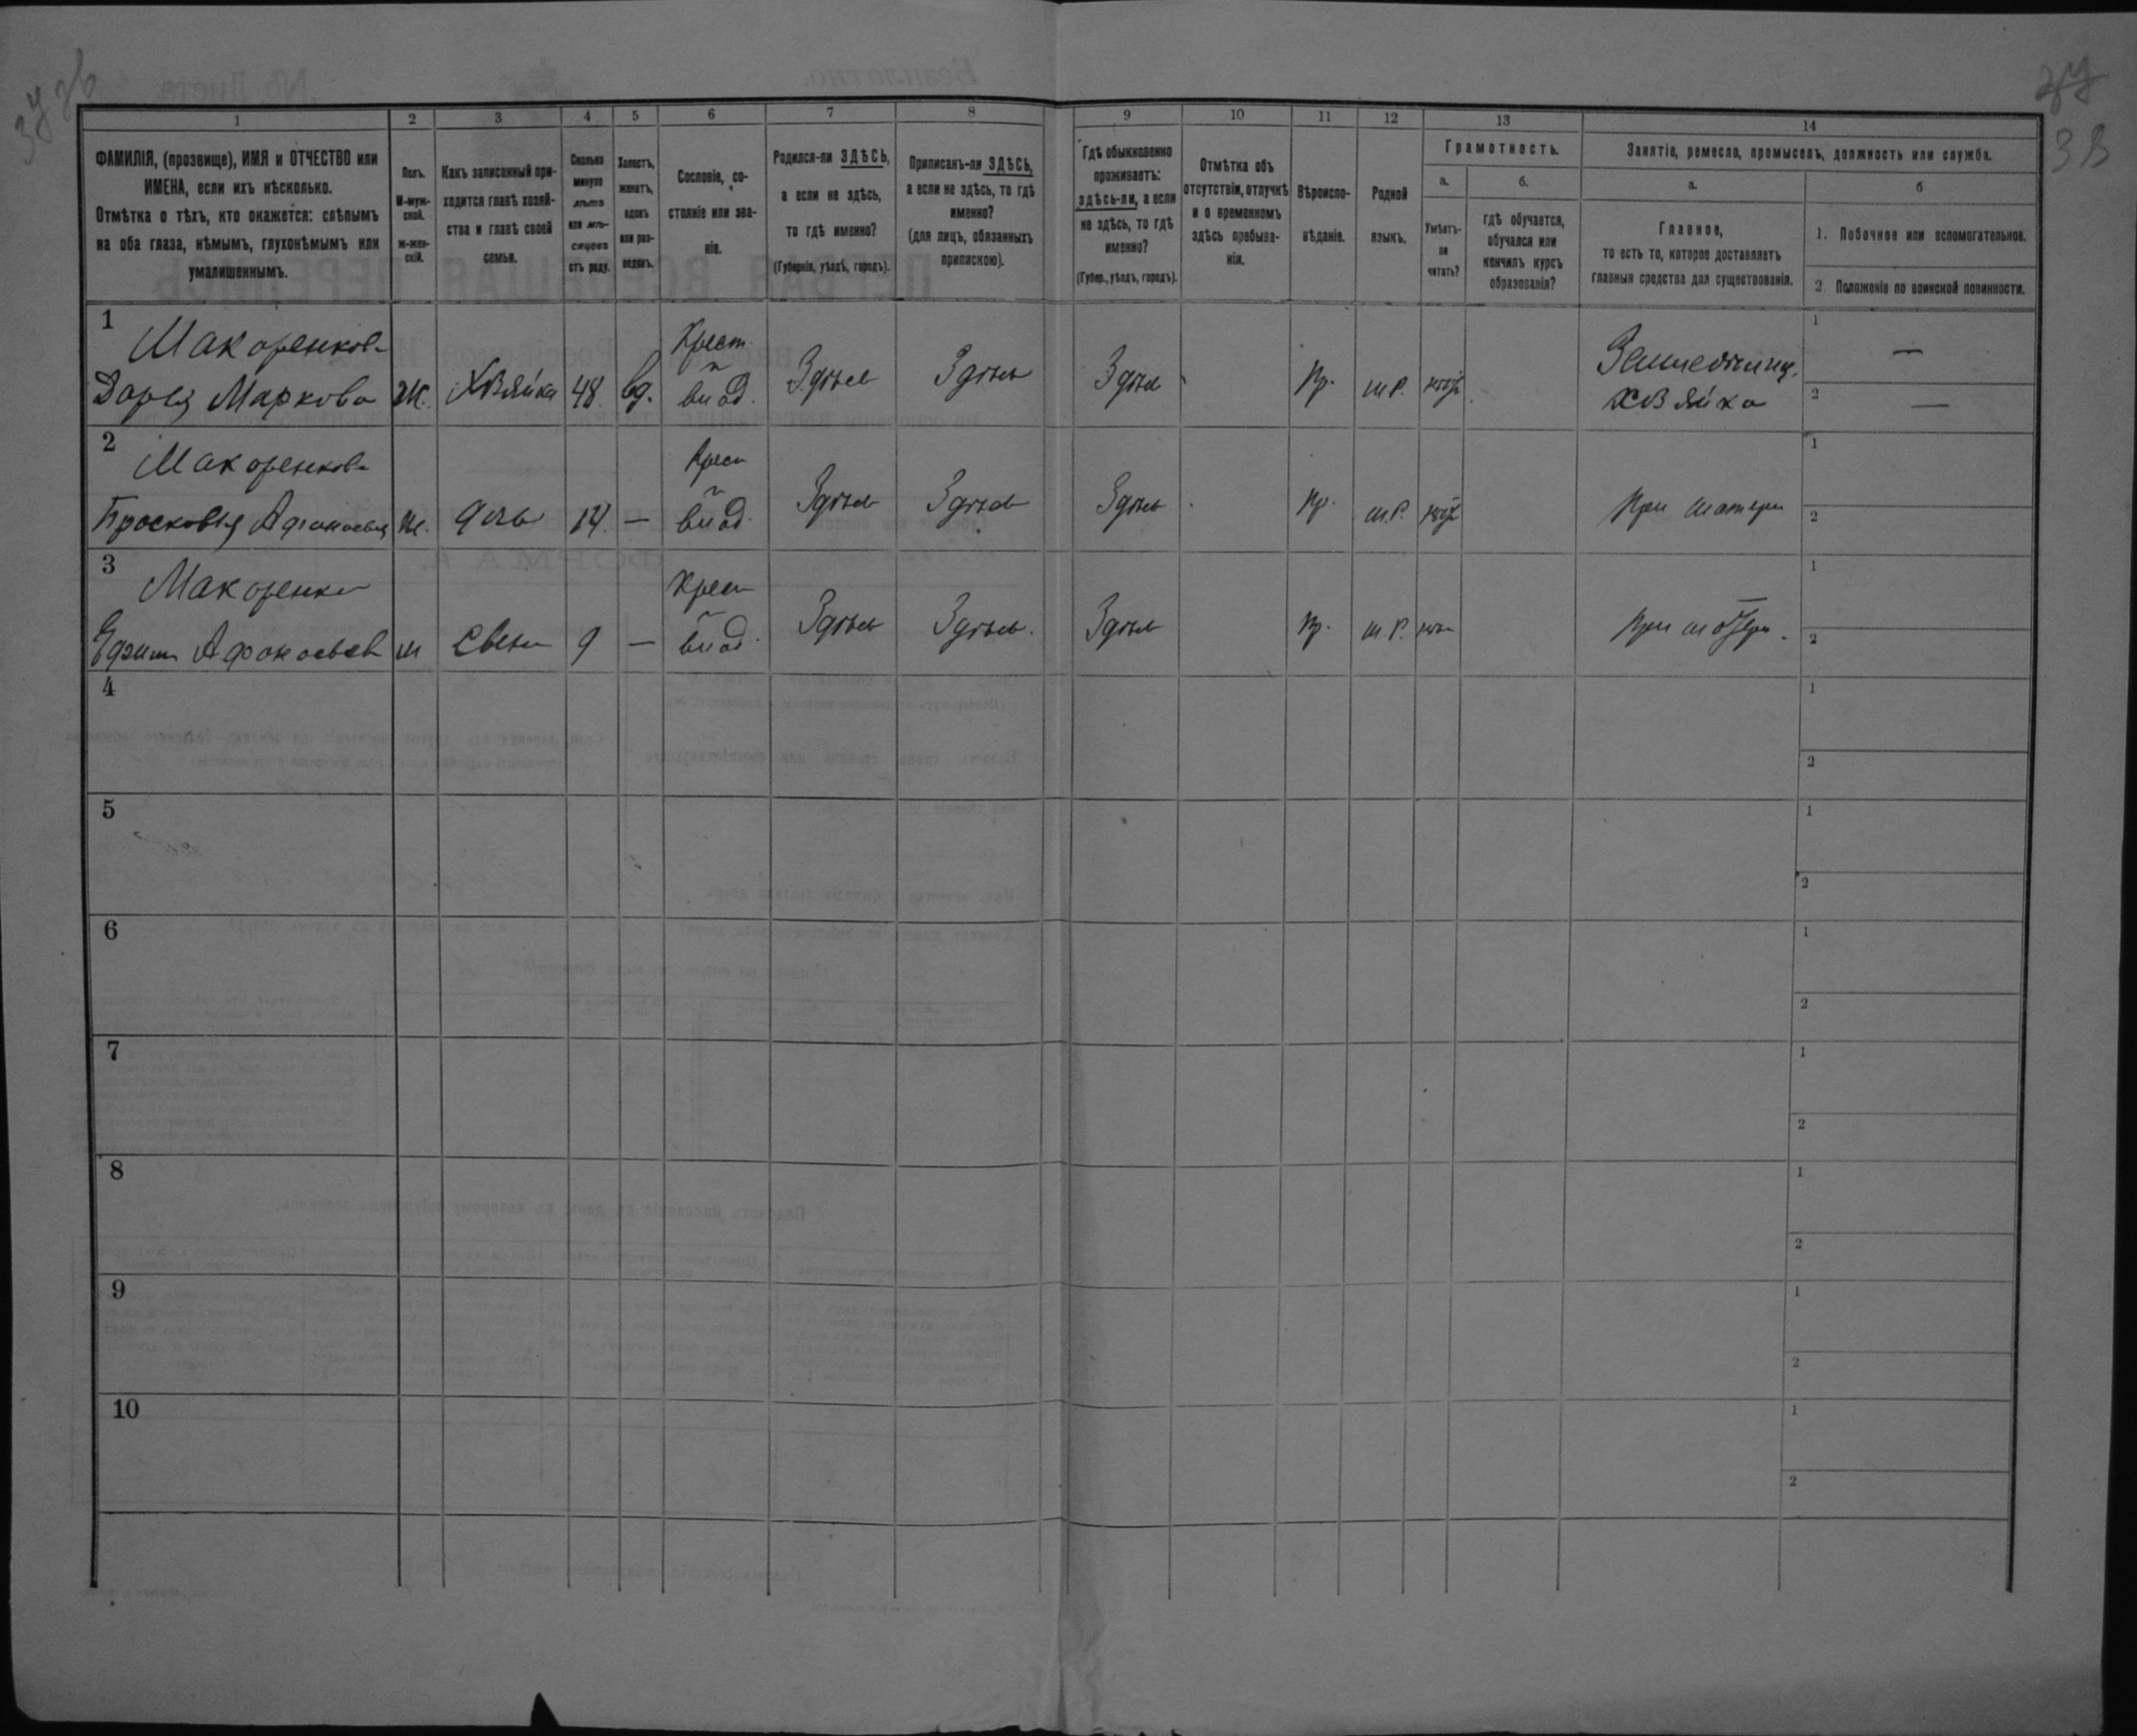 37 об
37
38
1
2
3
4
5
6
7
8
9
10
11
12
13
14
ФАМИЛІЯ, (прозвище), ИМЯ и ОТЧЕСТВО или
ИМЕНА, если ихъ нѣсколько.
Отмѣтка о тѣхъ, кто окажется: слѣпымъ
на оба глаза, нѣмымъ, глухонѣмымъ или
умалишеннымъ.
Полъ.
М-муж-
ской.
ж-жен-
скій.
Какъ записанный при-
ходится главѣ хозяй-
ства и главѣ своей
семьи.
Сколько
минуло
лѣтъ
или мѣ-
сяцевъ
отъ роду.
Холостъ,
женатъ,
вдовъ
или раз-
веденъ.
Сословіе, со-
стояніе или зва-
ніе.
Родился-ли ЗДѢСЬ,
а если не здѣсь,
то гдѣ именно?
(Губернія, уѣздъ, городъ).
Приписанъ-ли ЗДѢСЬ,
а если не здѣсь, то гдѣ
именно?
(для лицъ, обязанныхъ
припискою).
Гдѣ обыкновенно
проживаетъ:
здѣсь-ли, а если
не здѣсь, то гдѣ
именно?
(Губер., уѣздъ, городъ).
Отмѣтка объ
отсутствіи, отлучкѣ
и о временномъ
здѣсь пребыва-
ніи.
Вѣроиспо-
вѣданіе.
Родной
языкъ.
Грамотность.
а.
б.
Умѣетъ-
ли
читать?
гдѣ обучается,
обучался или
кончилъ курсъ
образованія?
Занятіе, ремесло, промыселъ, должность или служба.
а.
б
Главное,
то есть то, которое доставляетъ
главныя средства для существованія.
1. Побочное или вспомогательное.
2 Положеніе по воинской повинности.
1
Макаренкова
Дарья Маркова
ж.
Хозяйка
48.
вд.
Крест.
Здѣсь
Здѣсь
Здѣсь
Пр.
м.р.
хозяйка
1
—
2
—
2
Макаренкова
Просковья Афанасьева
ж.
дочь
14.
—
Крест
Здѣсь
Здѣсь
Здѣсь
Пр.
м.р.
При матери
1
2
3
Макаренко
Ефимъ Афанасьевъ
м
Сынъ
9
—
Крест
Здѣсь
Здѣсь.
Здѣсь
Пр.
м.р.
При матери.
1
2
4
1
2
5
1
2
6
1
2
7
1
2
8
1
2
9
1
2
10
1
2